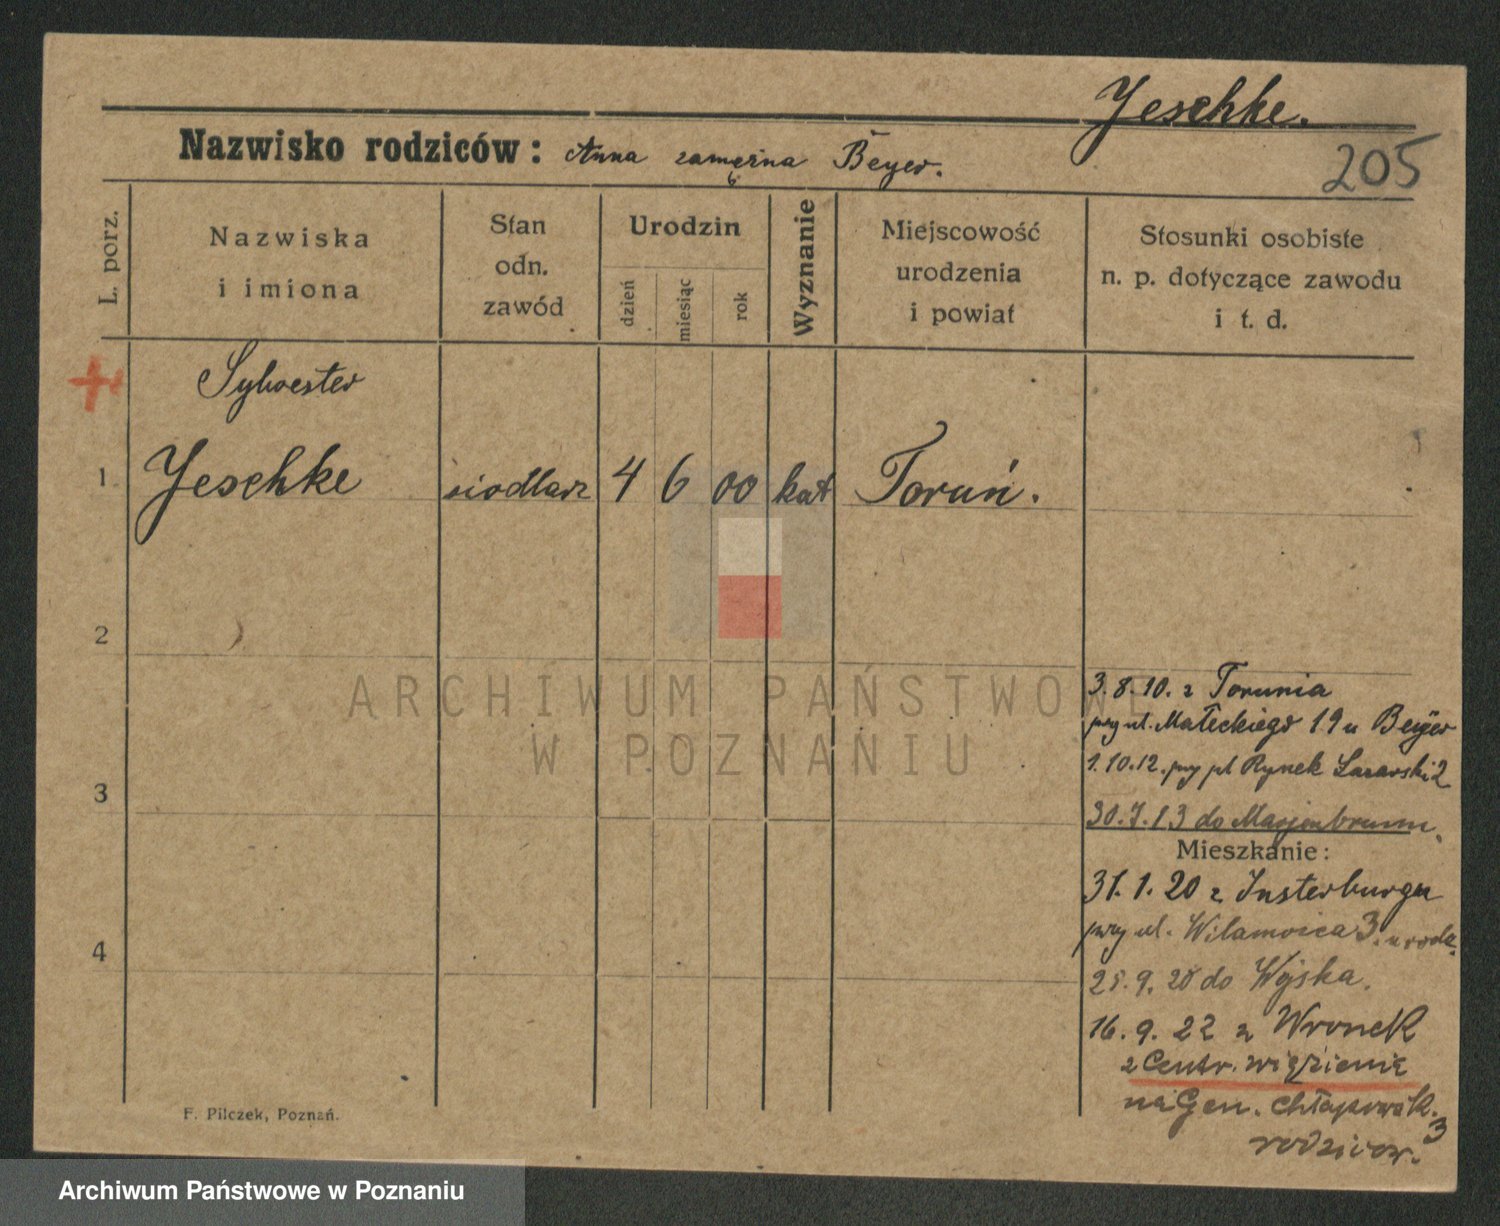 Jeschke.
205
Nazwisko rodziców: Anna zamężna Beyer.
L. porz.
Nazwiska
i imiona
Stan
odn.
zawód
Urodzin
dzień
miesiąc
rok
Wyznanie
Miejscowość
urodzenia
i powiat
Stosunki osobiste
n. p. dotyczące zawodu
i t. d.
Sylwester
1 Jeschke siodlarz 4 6 00 kat Toruń.
2
3
4
3.8.10. z Torunia
przy ul. Małeckiego 19 u Beyer
1.10.12. przy pl Rynek Łazarski 2
30.7.13 do
Mieszkanie:
31.1.20 z Insterburga
przy ul. 3. u rodz.
25.9.20 do Wojska.
16.9.22 z Wronek
z Centr. więzienia
na Gen. Chłapowsk. 3
rodziców.
F. Pilczek, Poznań.
ARCHIWUM PAŃSTWOWE
W POZNANIU
Archiwum Państwowe w Poznaniu